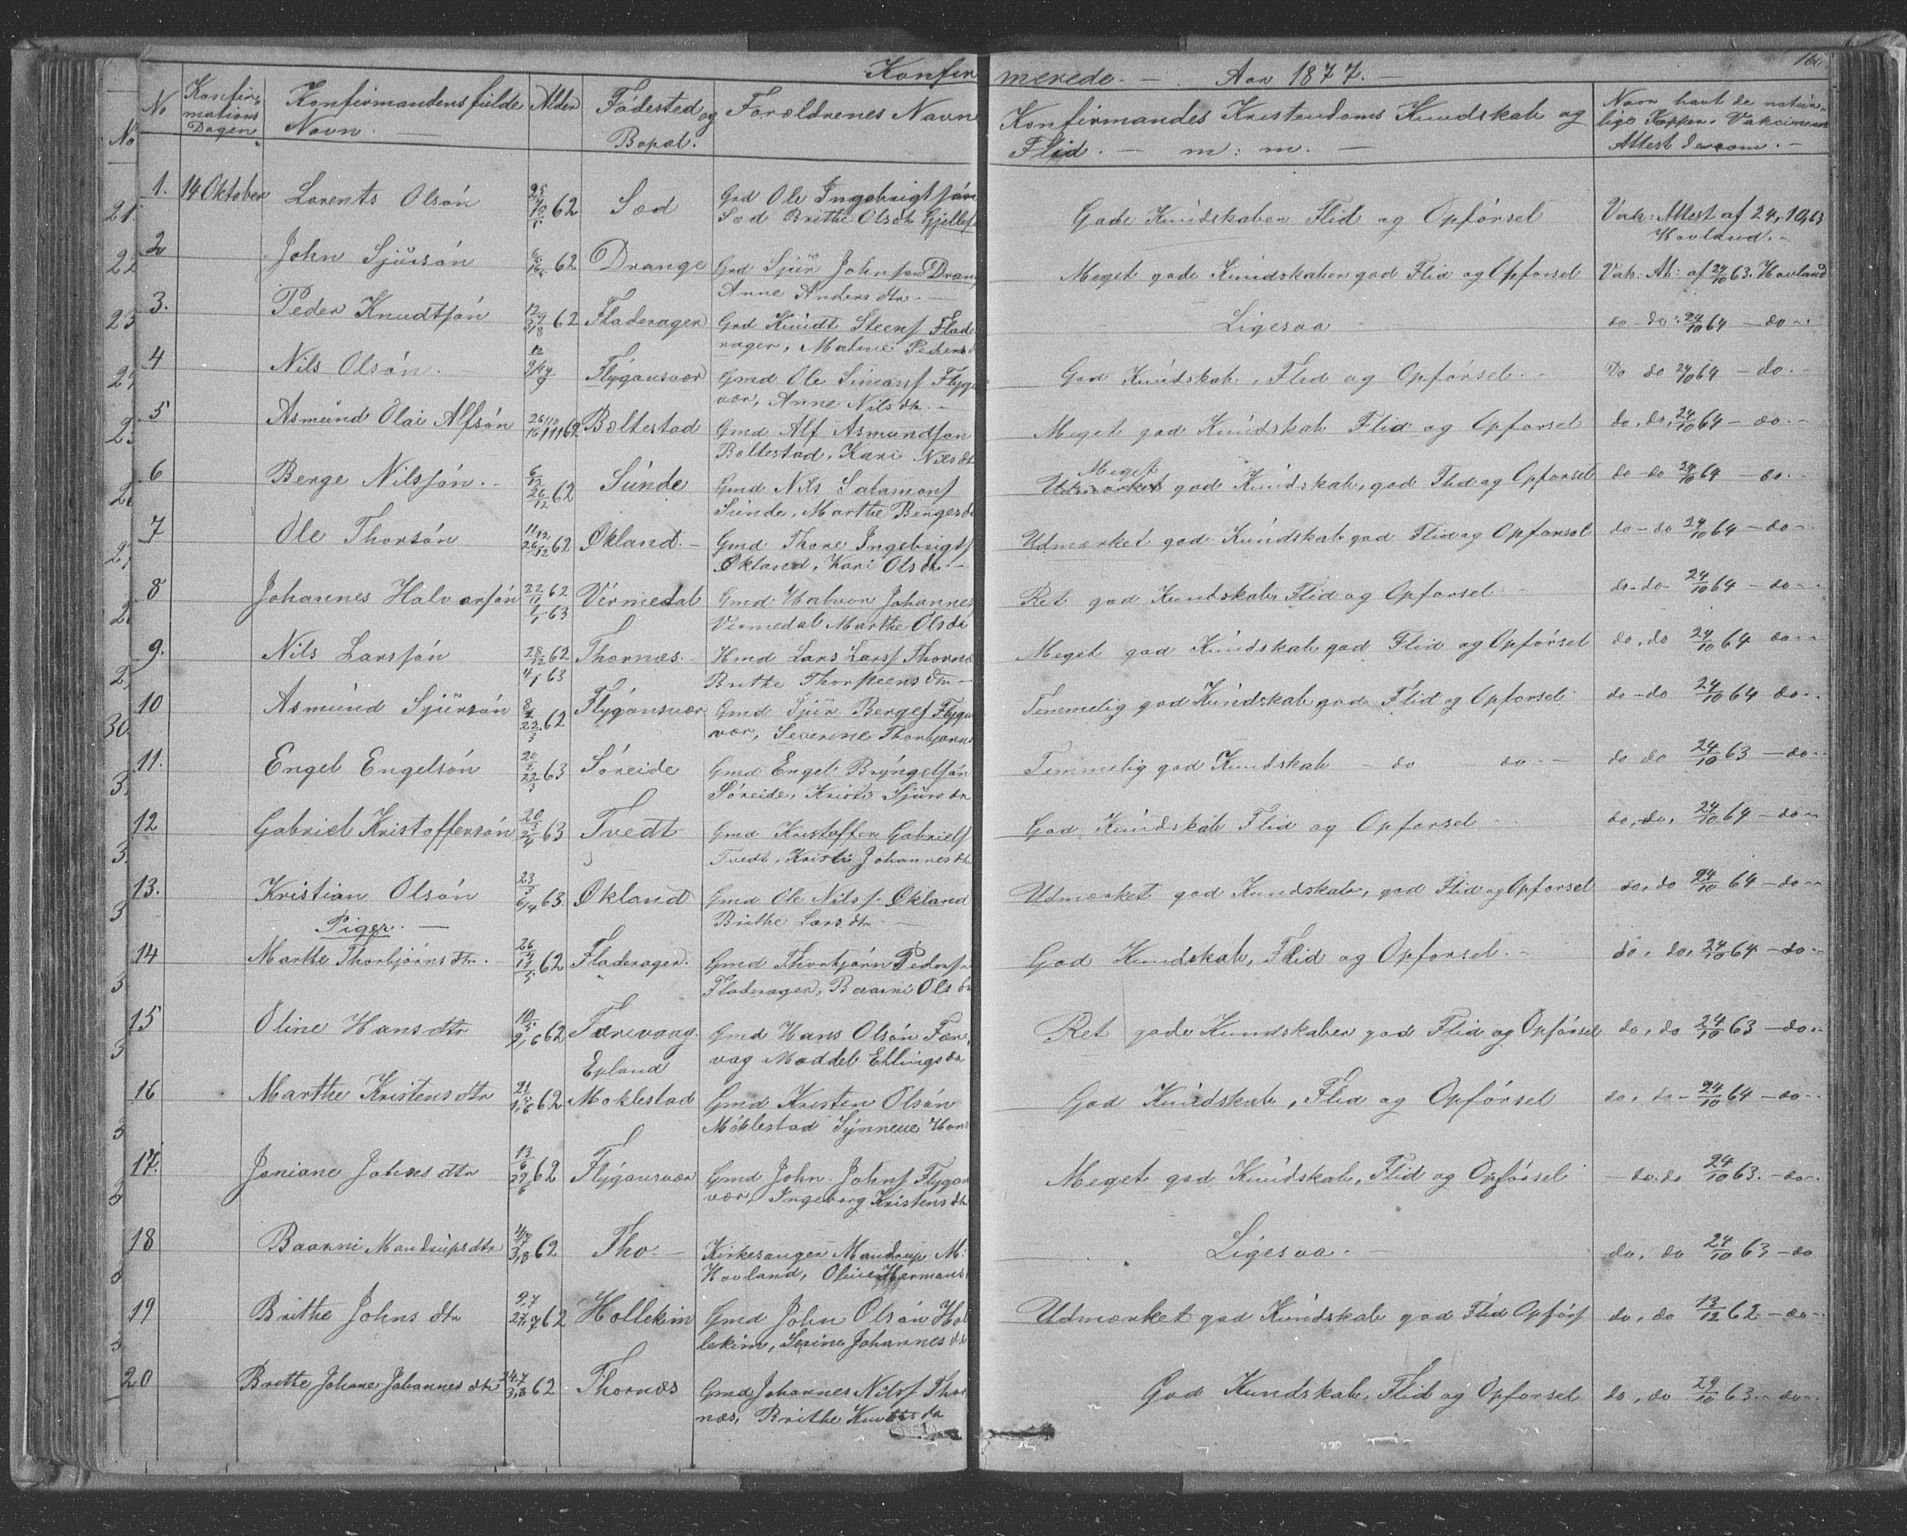 Konfirmerede. — Aar 1877. —
No Konfirmations Dagen Konfirmandens fulde Navn. Alder Fødested og Bopæl. Forældrenes Navn Konfirmandes Kristendoms Kundskab og Flid. — m: m. — Navn havt de naturlige Kopper. Vakcineret Attest derom. —
1. 14 Oktober Lorents Olsón 62 Sæd Grd Ole Ingebrigtsón
Sæd Brithe Olsdt Gode Kundskaber Flid og Opførsel Vak: Attest af 24, 10, 63
Hovland. -
2 John Sjursón 62 Drange Grd Sjur Johnson Drange
Anne Andersdtr. — Meget gode Kundskaber god Flid og Opførsel Vak: At: af 24/10 63. Hovland
3. Peder Knudtsón 62 Fladerager Grd Knudt Steens Flade
rager, Malene Peders Ligesaa do - do 24/10 64 — do -
4 Nils Olsón. Flygansvær Gmd Ole Simons Flygans
vær, Anne Nilsdtr. God Kundskab, Flid og Opførsel. - Do do 24/10 64 — do. -
5 Asmund Olai Alfsón 62 Boltestad Gmd Alf Asmundson
Boltestad, Kari Nilsdtr Meget god Kundskab Flid og Opførsel do, do, 24/10 64 — do. -
6 Berge Nilssón. - 6/12 26/12 62 Sunde Gmd Nils Salamons
Sunde, Marthe Bergesdtr Meget
Udmærket god Kundskab, god Flid og Opførsel do - do 24/10 64 — do. -
7 Ole Thorsón 11/12 26/12 62 Økland. - Gmd Thore Ingebrigts
Økland, Kari Olsdtr. - Udmærket god Kundskab god Flid og Opførsel do - do 24/10 64 — do -
8 Johannes Halvorsón 62 1/1 63 Virmedal Gmd Halvor Johannes
Vermedal Marthe Olsdtr Ret god Kundskab Flid og Opførsel do - do 24/10 64 — do -
9. Nils Larssón 28/12 62 4/1 63 Thornæs. Hmd Lars Lars Thornæs
Brithe Thorsteensdtr — Meget god Kundskab god Flid og Opførsel do, do 24/10 64 do -
10 Asmund Sjursón 62 Flygansvær Gmd Sjur Berges Flygans
vær, Severine Thorbjørns Temmelig god Kundskab god Flid og Opførsel do - do 24/10 64 do -
11. Engel Engelsón 63 Søreide Gmd Engel Bryngelsón
Søreide, Kristi Sjursdtr Temmelig god Kundskab - do - do - do do 24/10 63 — do -
12 Gabriel Kristoffersón 63 Tvedt Gmd Kristoffer Gabriels
Tvedt, Kristi Johannesdtr God Kundskab Flid og Opførsel do, do, 24/10 64 — do -
13. Kristian Olsón 23/3 6/4 63 Økland Gmd Ole Nils Økland
Brithe Larsdtr — Udmærket god Kundskab, god Flid og Opførsel do, do 24/10 64 — do -
Piger. —
14 Marthe Thorbjørnsdtr. 62 Fladerager. Gmd Thorbjørn Peders
Fladerager, Baarni Olsdtr God Kundskab, Flid og Opførsel. - do, do, 24/10 64 — do -
15 Oline Hansdtr 62 Færevaag
Epland Gmd Hans Olsón Fær
vag Maddel Ellingsdtr Ret gode Kundskaber god Flid og Opførsel do, do 24/10 63 — do -
16 Marthe Kristensdtr 62 Moklestad Gmd Kristen Olsón
Moklestad Synneve Hans God Kundskab, Flid og Opførsel do, do - 24/10 64 — do -
17. Joniane Johnsdtr 13/6 29/6 62 Flygansvær Gmd John Johns Flygans
vær, Ingeborg Kristensdtr Meget god Kundskab, Flid og Opførsel — do. do 24/10 63. — do -
18 Baarni Mandrupsdtr 62 Tho. — Kirkesanger Mandrup M:
Hovland, Oline Hermans Ligesaa. - do, do 24/10 63 — do
19 Brithe Johnsdtr 62 Hollekim Gmd John Olsón Hol
lekim, Serine Johannesdtr Udmærket god Kundskab god Flid Opførs do, do 13/12 62 — do -
20 Brithe Johane Johannesdtr 62 Thornæs Gmd Johannes Nils Thor
næs, Brithe Knudtsdtr God Kundskab, Flid og Opførsel do, do 24/10 63. - do -